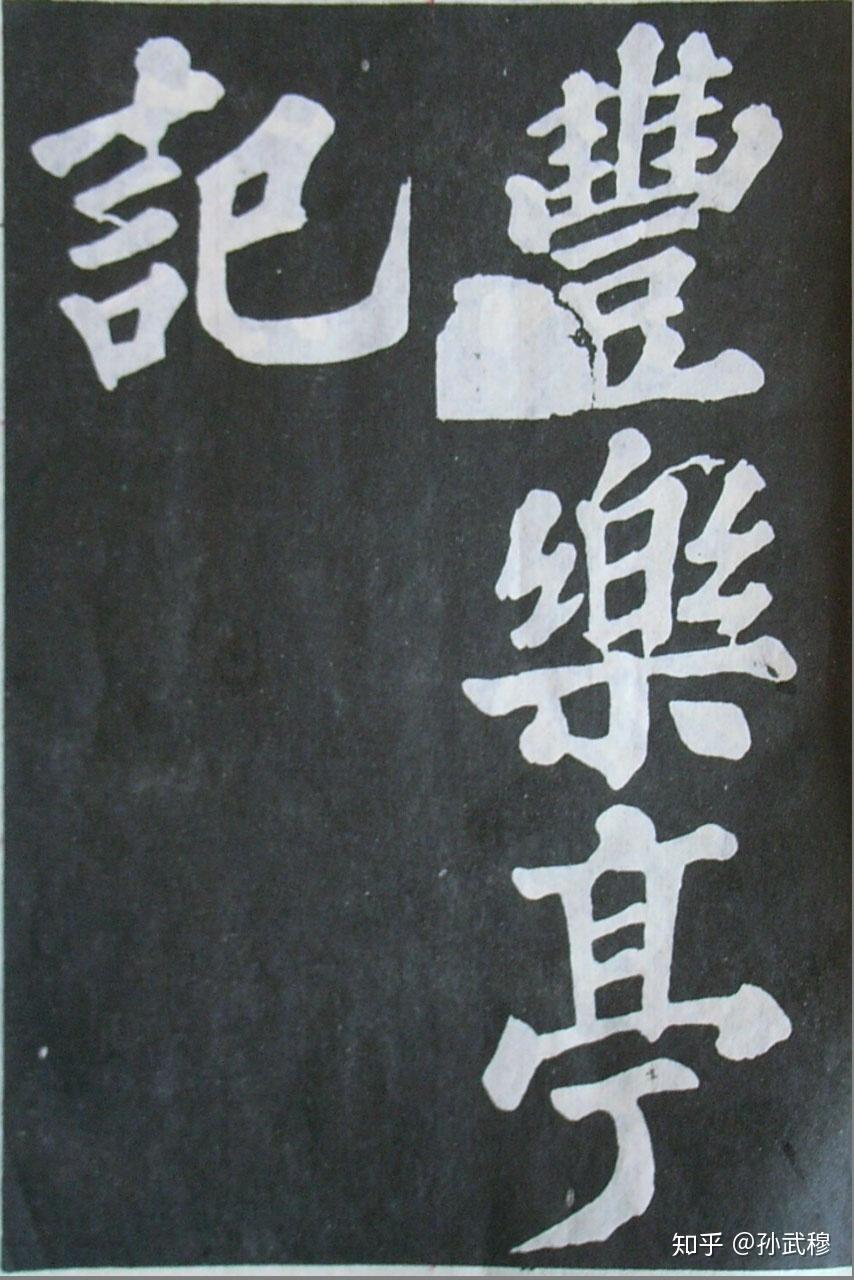 豐樂亭
記
知乎 @孙武穆